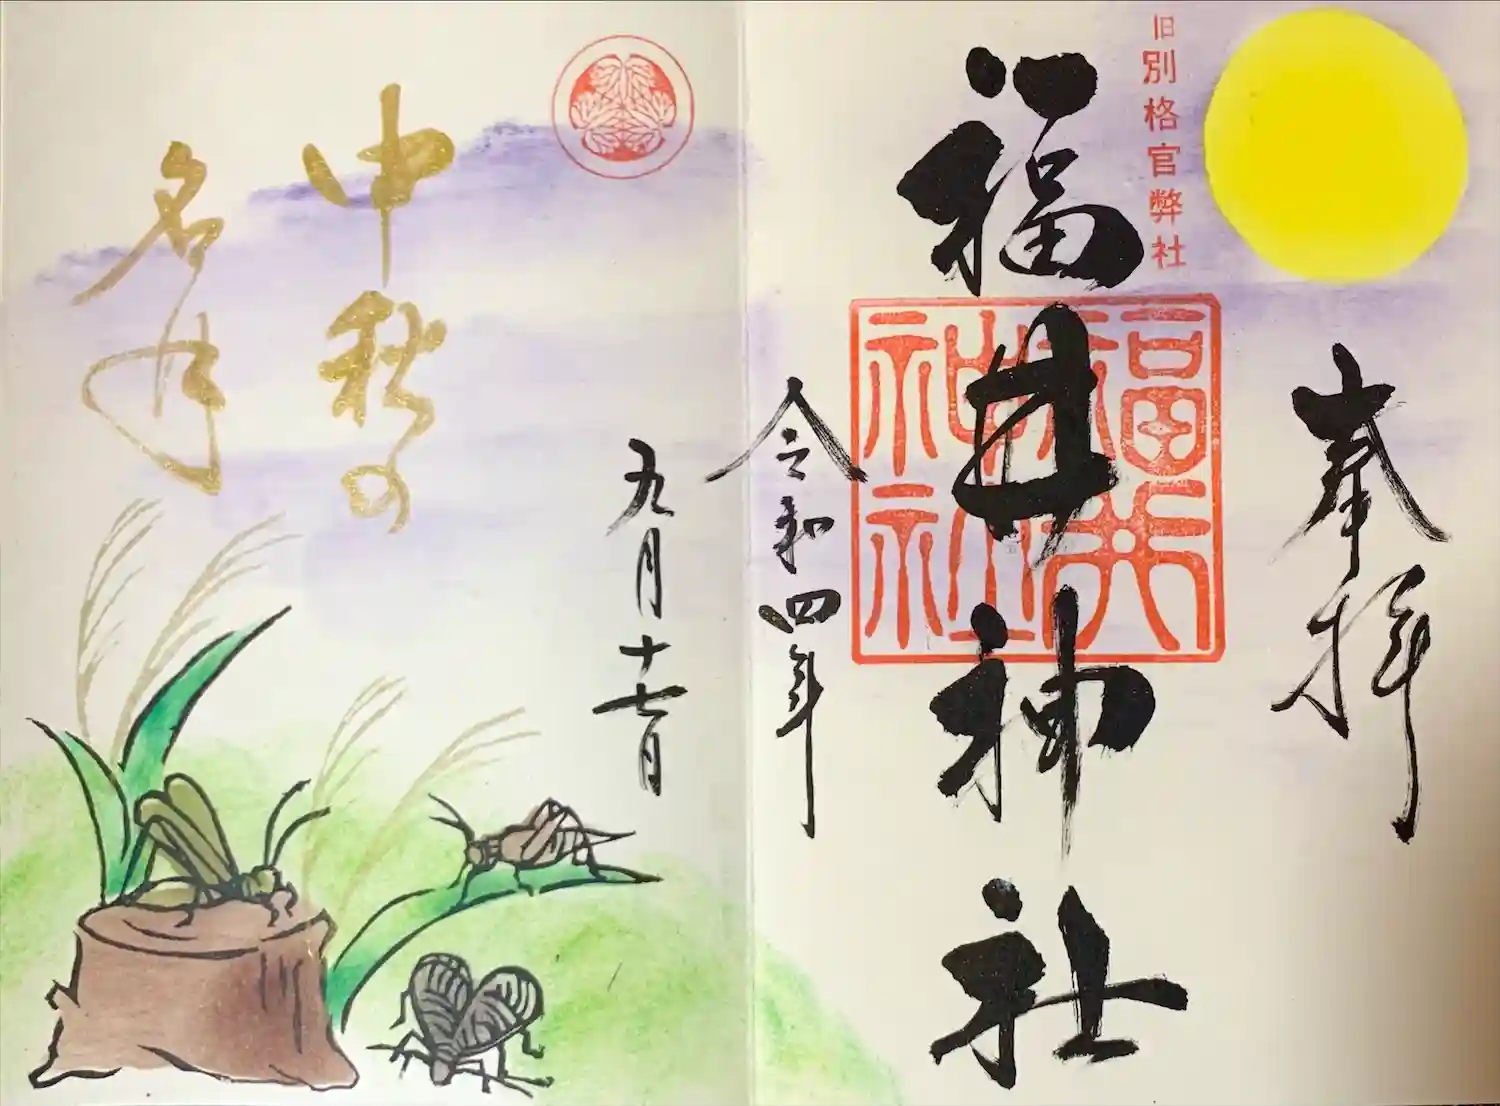 奉拝
旧別格官弊社
福井神社
福井
神社
令和四年
九月十七日
中秋の
名月